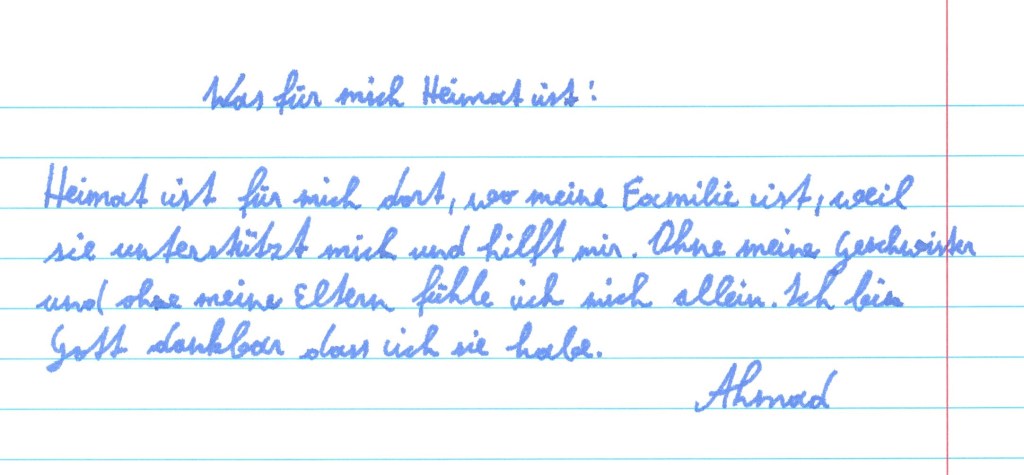 Was für mich Heimat ist:
Heimat ist für mich dort, wo meine Familie ist, weil
sie unterstützt mich und hilft mir. Ohne meine Geschwister
und ohne meine Eltern fühle ich mich allein. Ich bin
Gott dankbar dass ich sie habe.
Ahmad